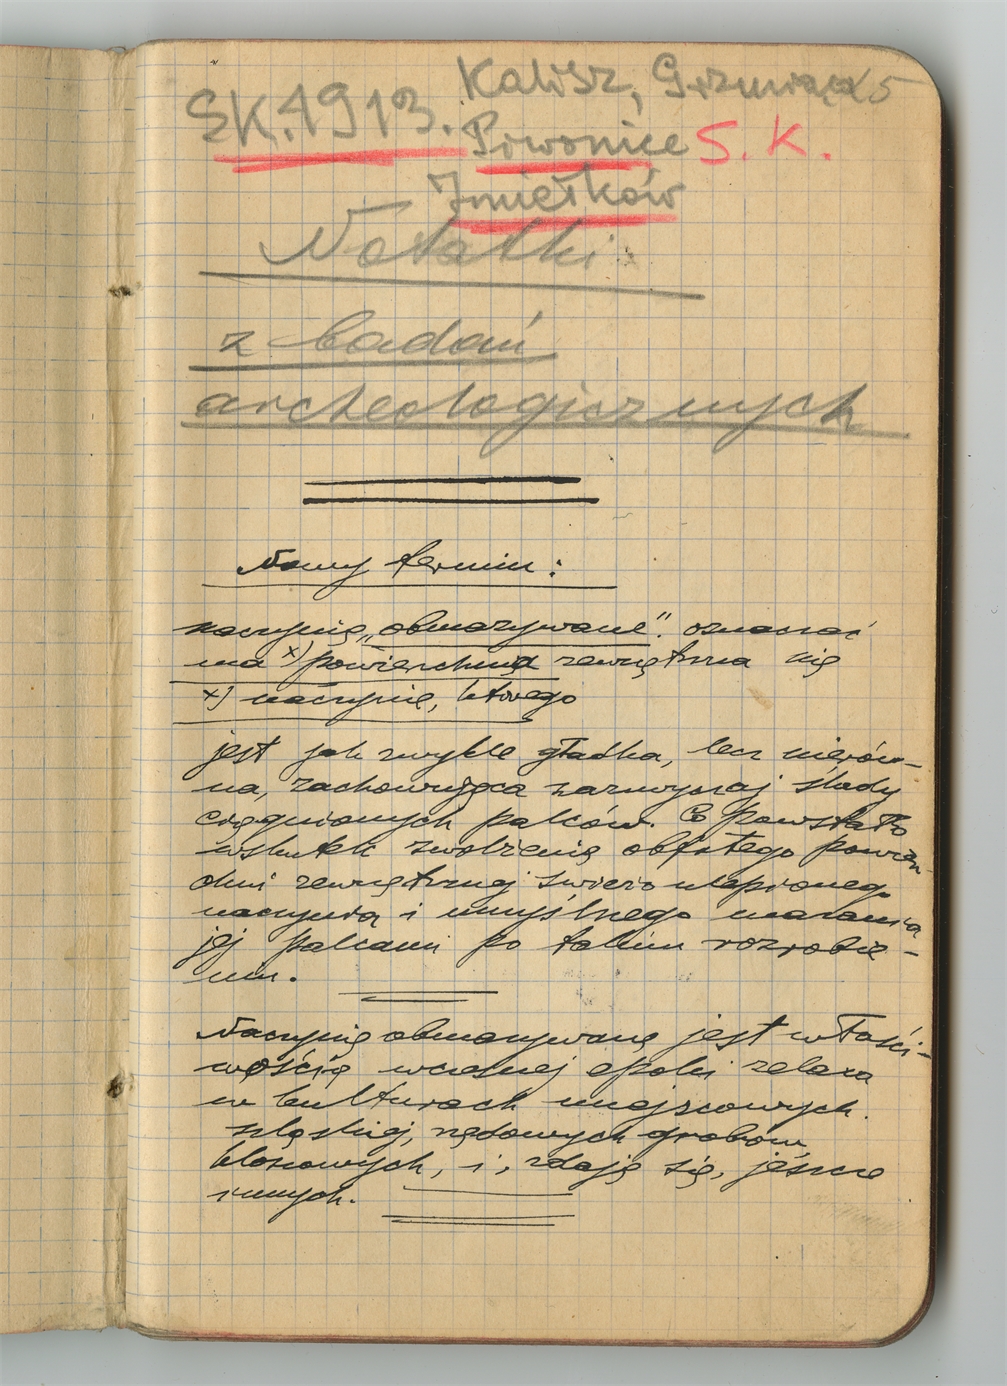 SK. 1913. Kalisz,
Piwonice S. K.
Notatki:
z badań
archeologicznych
Nowy termin:
naczynie „obmazywane". oznaczać
ma x) powierzchnię zewnętrzna nie
x) naczynie, którego
jest jak zwykle gładka, lecz nierów-
na, zachowująca zazwyczaj ślady
ciągnionych palców. Co powstało
wskutek zwolżenia obfitego powierz-
chni zewnętrznej świeżo ulepionego
naczynia i umyślnego mazania
jej palcami po takim rozrobie-
niu.
Naczynie obmazywane jest właści-
wością wczesnej epoki żelaza
w kulturach miejscowych.
śląskiej, rzędowych grobów
kloszowych, i, zdaje się, jeszcze
innych.